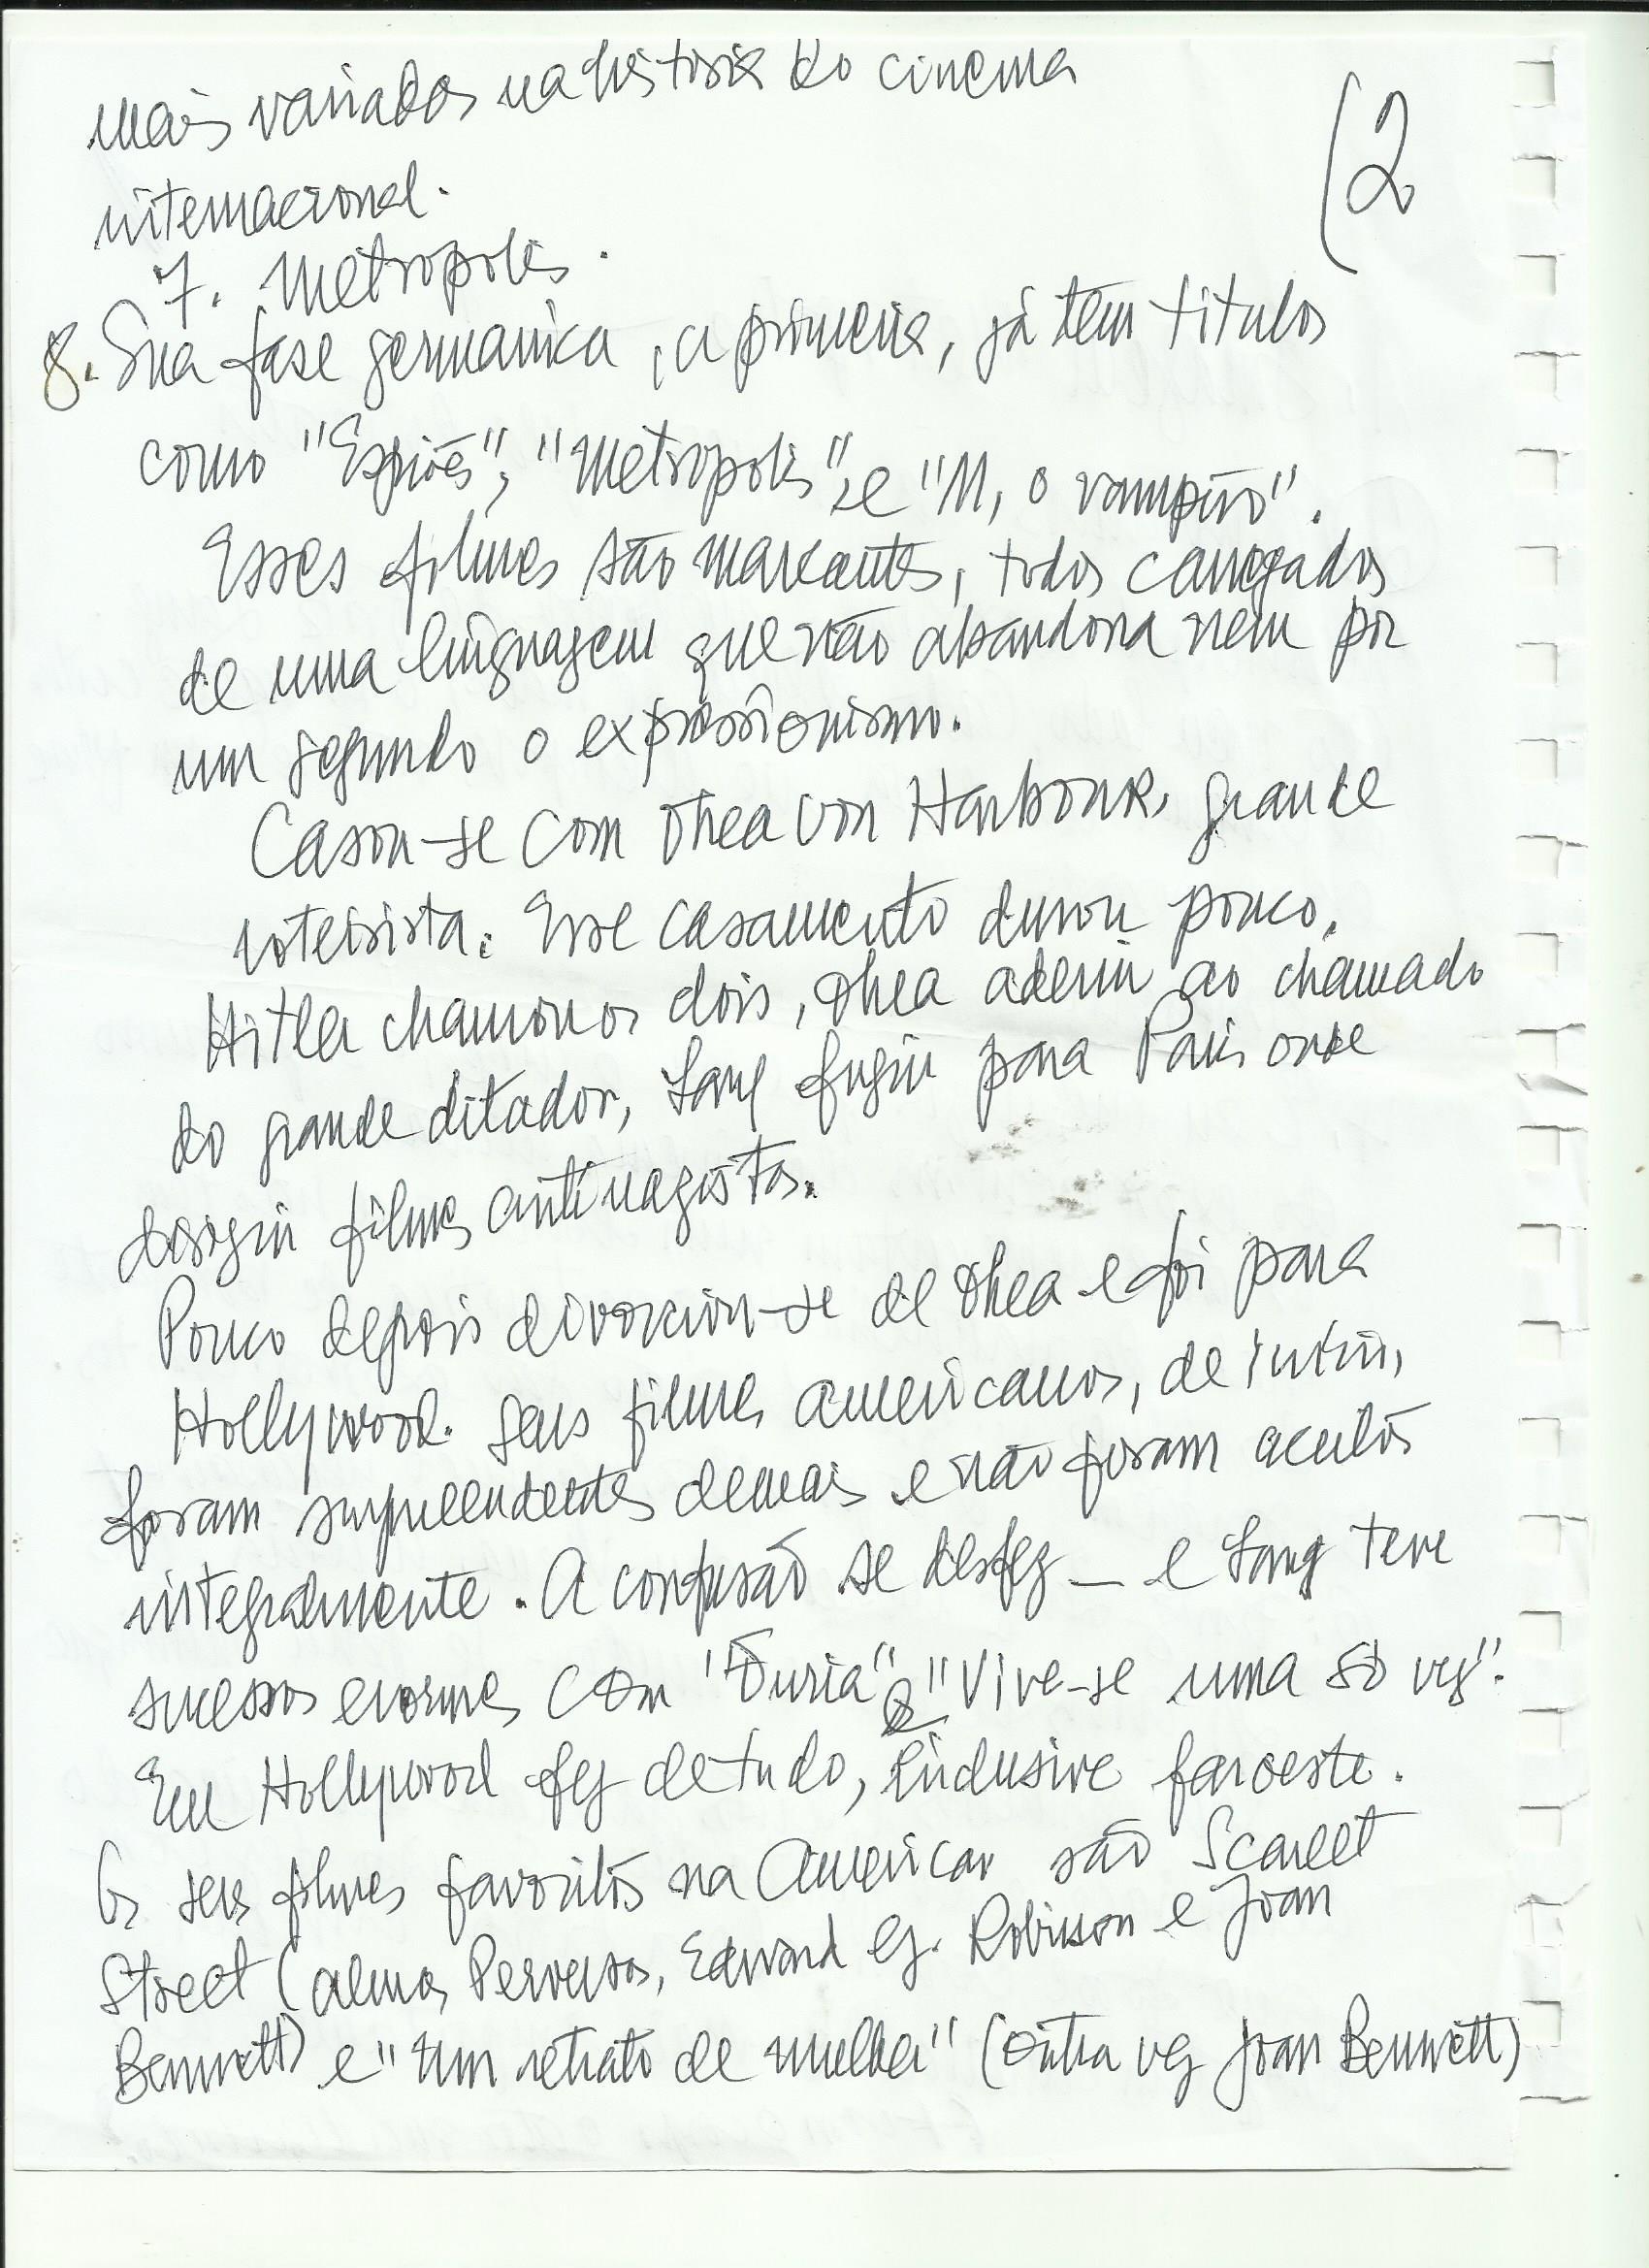 mais variados na história do cinema
(2
internacional.
7. Metropolis.
8. Sua fase germanica, a primeira, já tem titulos
como "Espiões", "Metropolis", e "M, o vampiro".
Esses filmes são marcantes, todos carregados
de uma linguagem que não abandona nem por
um segundo o expressionismo.
Casou-se com Thea von Harbour, grande
roteirista. Esse casamento durou pouco.
Hitler chamou os dois, Thea aderiu ao chamado
do grande ditador, Lang fugiu para Paris onde
dirigiu filmes antinazistas.
Pouco depois divorciou-se de Thea e foi para
Hollywood. Seus filmes americanos, de início,
foram surpreendentes demais e não foram aceitos
integralmente. A confusão se desfez — e Lang teve
sucessos enormes com "Furia" e "Vive-se uma só vez".
Em Hollywood fez de tudo, inclusive faroeste.
Os seus filmes favoritos na America são Scarlet
Street (Almas Perversas, Edward G. Robinson e Joan
Bennett) e "Um retrato de mulher" (outra vez Joan Bennett)